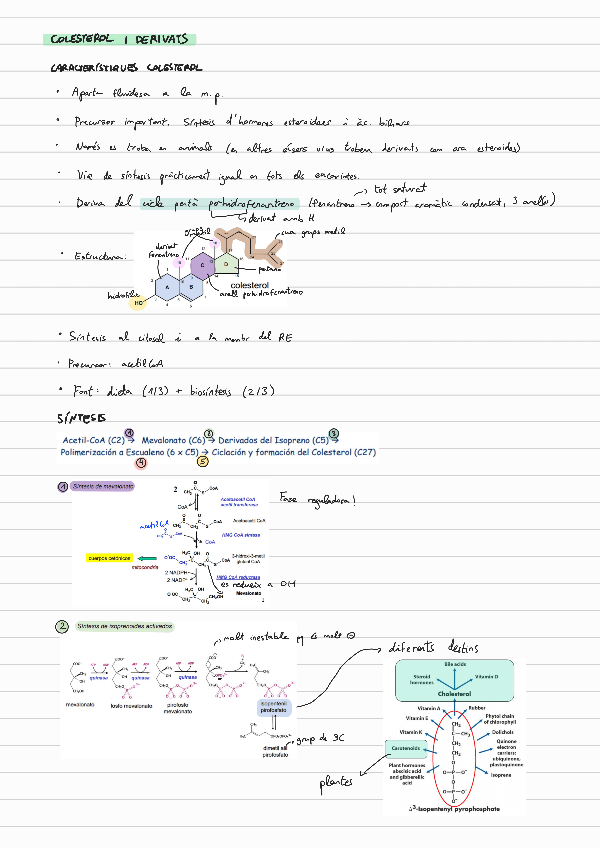 COLESTEROL I DERIVATS
CARACTERÍSTIQUES COLESTEROL
• Aporta fluïdesa a la m.p.
• Precursor important. Síntesi d'hormones esteroidees i àc. biliars
• Només es troba en animals (en altres éssers vius trobem derivats com ara esteroides)
• Via de síntesi pràcticament igual en tots els eucariotes.
tot saturat
• Deriva del cicle pentà perhidrofenantreno (fenantreno → compost aromàtic condensat, 3 anells)
derivat amb H
cua grups metil
derivat fenantreno
• Estructura:
A B C D
pentano
colesterol
anell perhidrofenantreno
hidròfila
HO
• Síntesis al citosol i a la membr del RE
• Precursor: acetil CoA
• Font: dieta (1/3) + biosíntesis (2/3)
SÍNTESIS
1 2 3
Acetil-CoA (C2) → Mevalonato (C6) → Derivados del Isopreno (C5) →
Polimerización a Escualeno (6 x C5) → Ciclación y formación del Colesterol (C27)
4 5
1 Síntesis de mevalonato
2
CoA
Fase reguladora!
Acetoacetil CoA
acetil transferasa
CoA
Acetoacetil CoA
acetil CoA
HMG CoA sintasa
CoA
cuerpos cetónicos
mitocondria
3-hidroxi-3-metil
glutaril CoA
2 NADPH
2 NADP⁺
HMG CoA reductasa
es redueix a OH
Mevalonato
2 Síntesis de isoprenoides activados
molt inestable pq és molt ⊖
diferents destins
quinasa quinasa quinasa
mevalonato
fosfo mevalonato
pirofosfo
mevalonato
isopentenil
pirofosfato
grup de 3C
dimetil alil
pirofosfato
plantes
Bile acids
Steroid
hormones
Vitamin D
Cholesterol
Vitamin A
Rubber
Vitamin E
Phytol chain
of chlorophyll
Vitamin K
Dolichols
Carotenoids
Quinone
electron
carriers:
ubiquinone,
plastoquinone
Plant hormones
abscisic acid
and gibberellic
acid
Isoprene
Δ³-Isopentenyl pyrophosphate